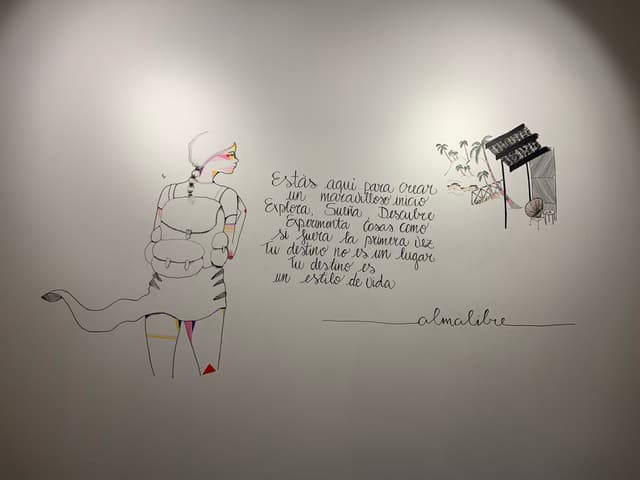 Estás aqui para crear
un maravilloso inicio
Explora, Sueña, Descubre
Experimenta Cosas como
si fuera la primera vez
Tu destino no es un lugar
Tu destino es
un estilo de vida
almalibre